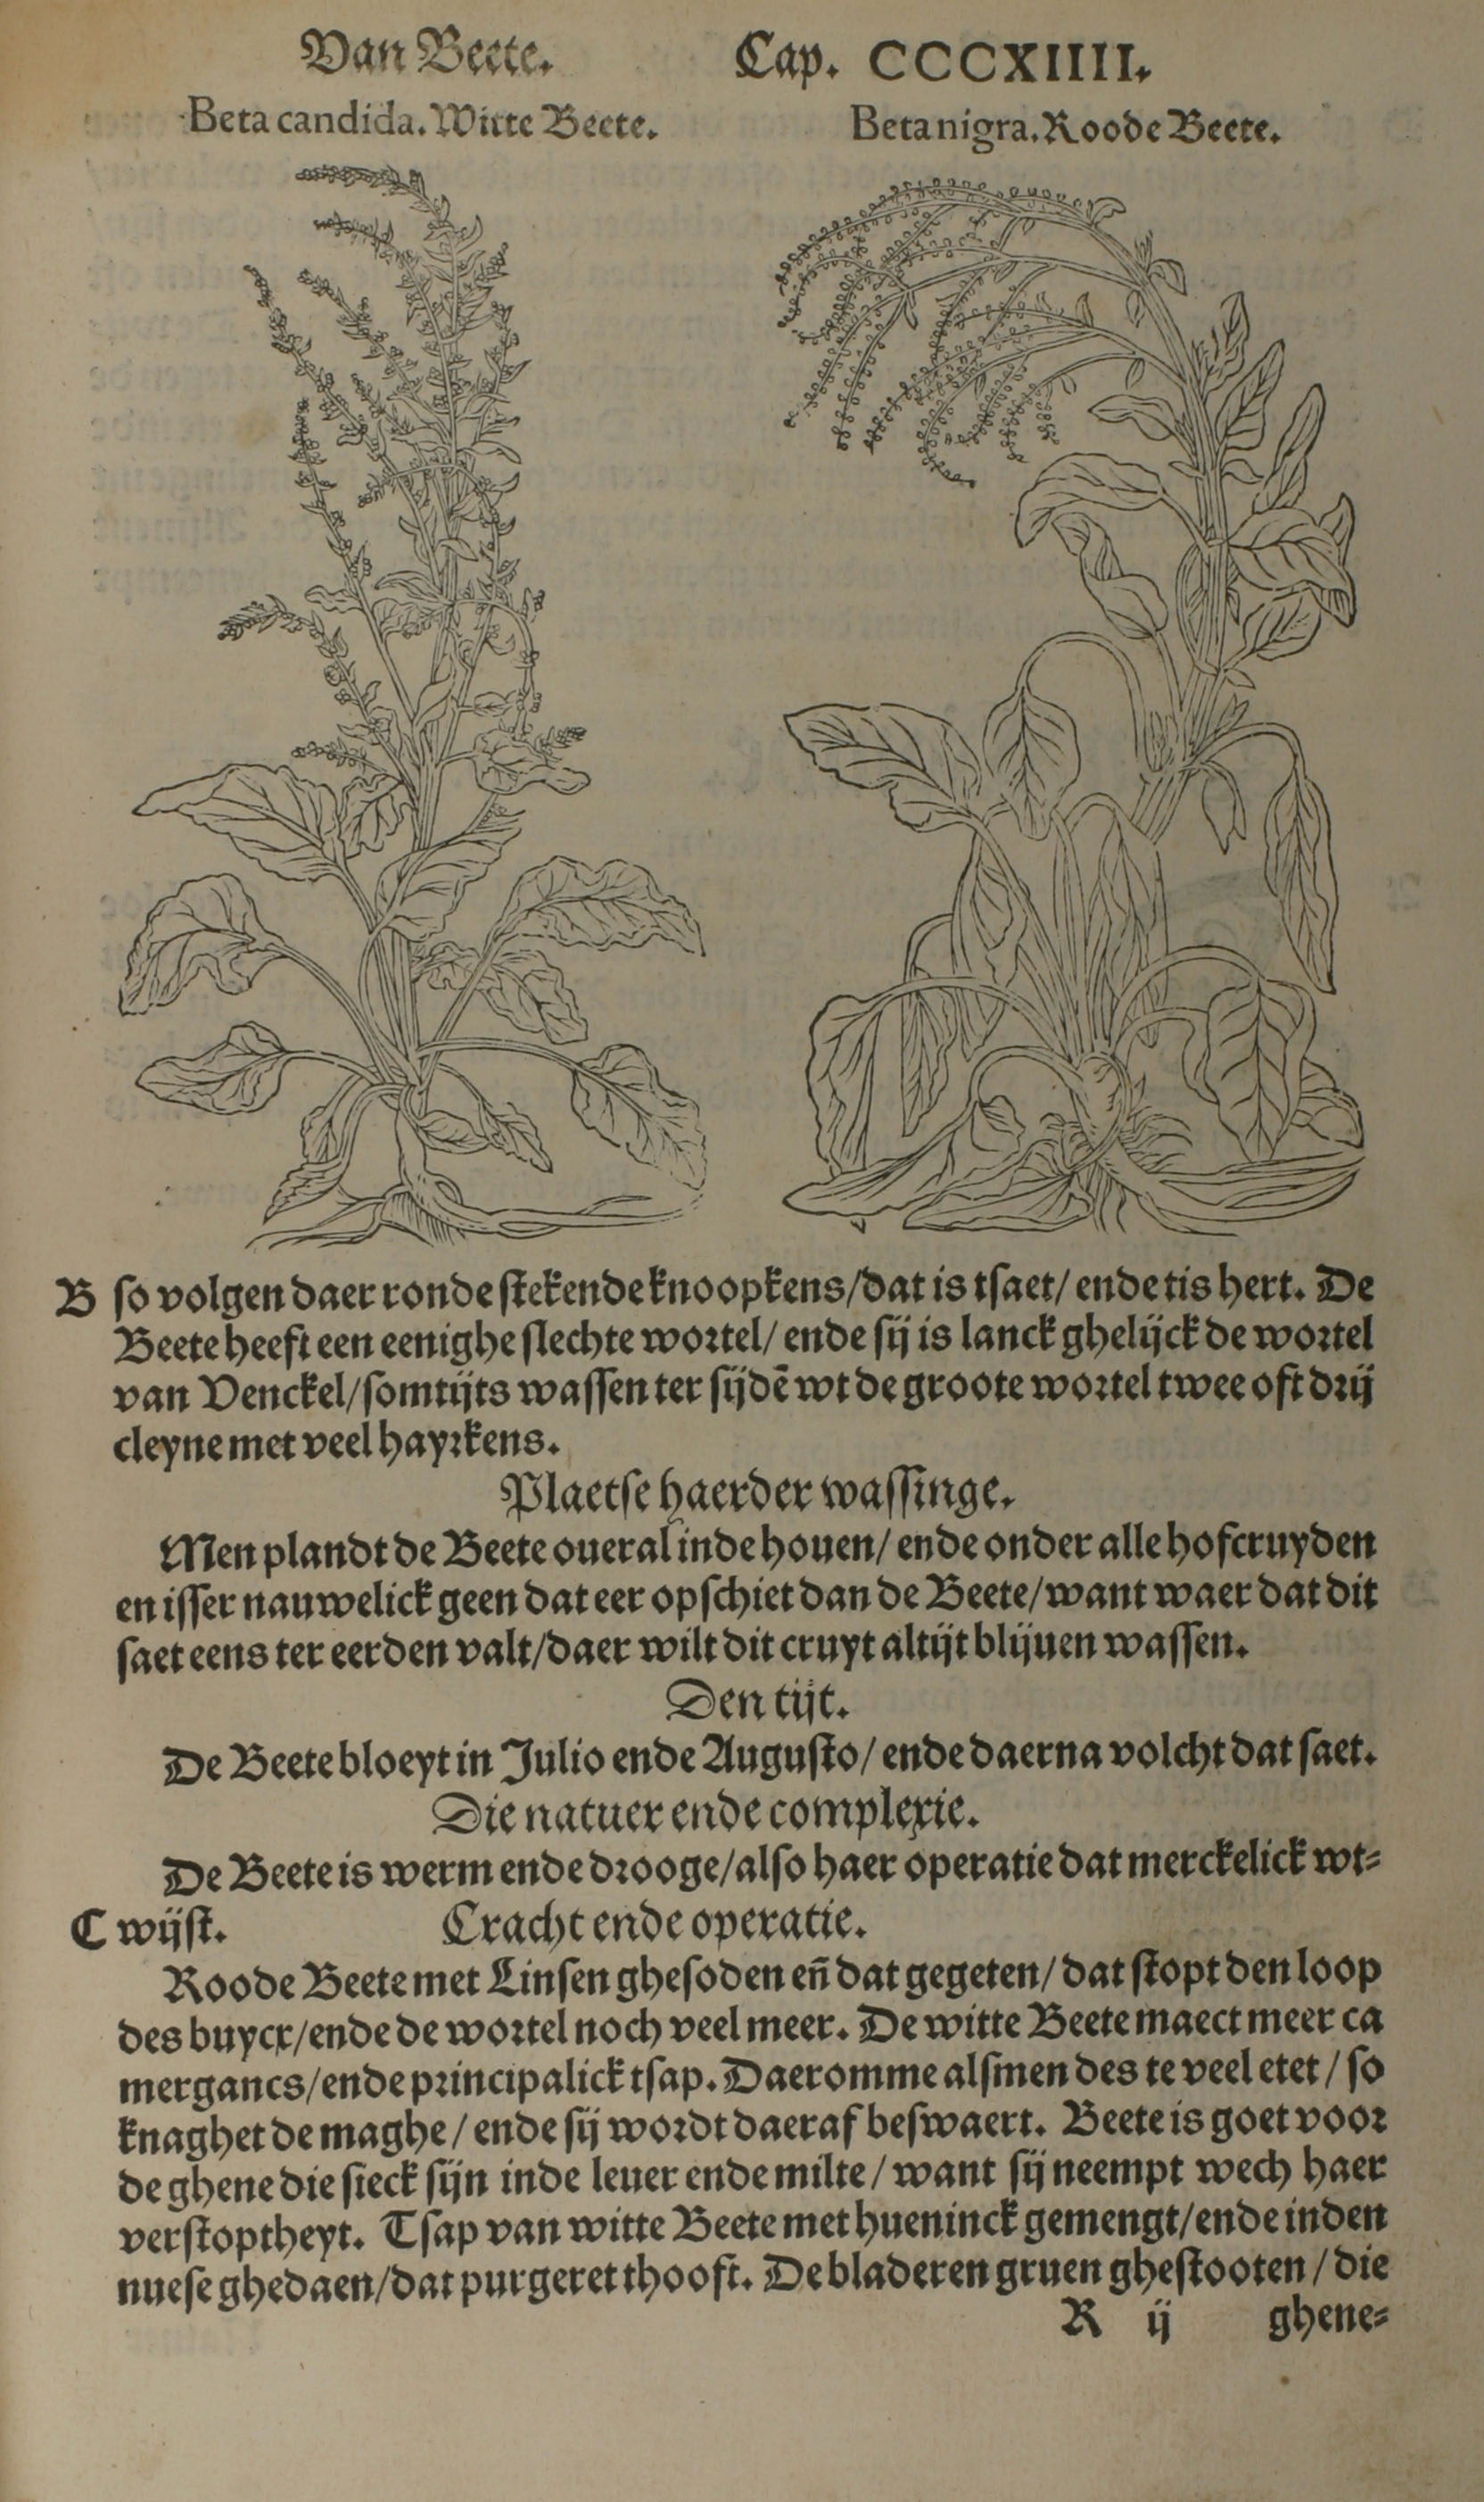 Van Beete. Cap. CCCXIIII.
Beta candida. Witte Beete. Beta nigra. Roode Beete.
B so volgen daer ronde stekende knoopkens/dat is tsaet/ ende tis hert. De
Beete heeft een eenighe slechte wortel/ ende sij is lanck ghelijck de wortel
van Venckel/somtijts wassen ter sijdē wt de groote wortel twee oft drij
cleyne met veel hayrkens.
Plaetse haerder wassinge.
Men plandt de Beete oueral inde houen/ ende onder alle hofcruyden
en isser nauwelick geen dat eer opschiet dan de Beete/want waer dat dit
saet eens ter eerden valt/daer wilt dit cruyt altijt blijuen wassen.
Den tijt.
De Beete bloeyt in Julio ende Augusto/ ende daerna volcht dat saet.
Die natuer ende complexie.
De Beete is werm ende drooge/also haer operatie dat merckelick wt=
C wijst. Cracht ende operatie.
Roode Beete met Linsen ghesoden en̄ dat gegeten/ dat stopt den loop
des buycx/ende de wortel noch veel meer. De witte Beete maect meer ca
mergancs/ende principalick tsap. Daeromme alsmen des te veel etet / so
knaghet de maghe / ende sij wordt daeraf beswaert. Beete is goet voor
de ghene die sieck sijn inde leuer ende milte / want sij neempt wech haer
verstoptheyt. Tsap van witte Beete met hueninck gemengt/ende inden
nuese ghedaen/dat purgeret thooft. De bladeren gruen ghestooten / die
R ij ghene=